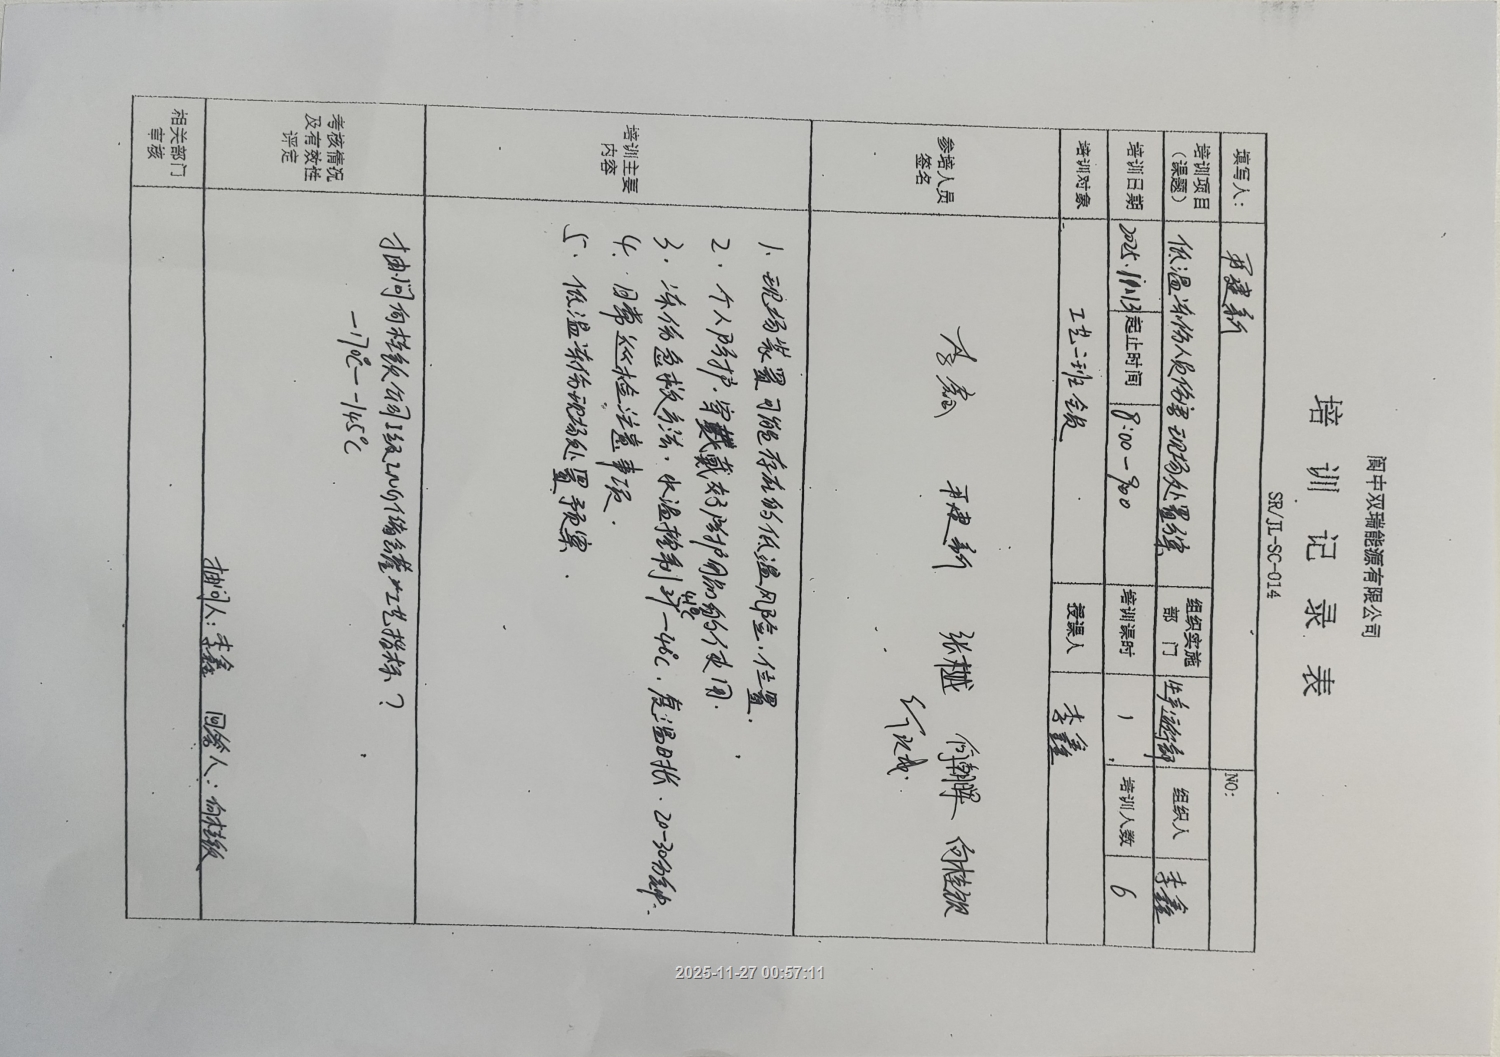 阆中双瑞能源有限公司
培训记录表
SR/JL-SC-014
填写人： 苟建新 NO:
培训项目（课题） 低温冻伤人员伤害现场处置方案 组织实施部门 生产运行部 组织人 李鑫
培训日期 2025.11月13 起止时间 8:00-9:00 培训课时 1 培训人数 6
培训对象 工艺一班全员 授课人 李鑫
参培人员签名 李鑫 苟建新 张樾 何朝晖 向桂钦
培训主要内容
1、现场装置可能存在的低温风险、位置.
2、个人防护、穿戴戴好防护用品的使用.
3、冻伤急救方法、水温控制 -42℃、复温时长、20-30分钟.
4、日常巡检注意事项.
5、低温冻伤现场处置预案.
考核情况及有效性评定
抽问向桂钦公司1级LNG储罐工艺指标？
-170℃--145℃
抽问人：李鑫 回答人：向桂钦
相关部门审核
2025-11-27 00:57:11